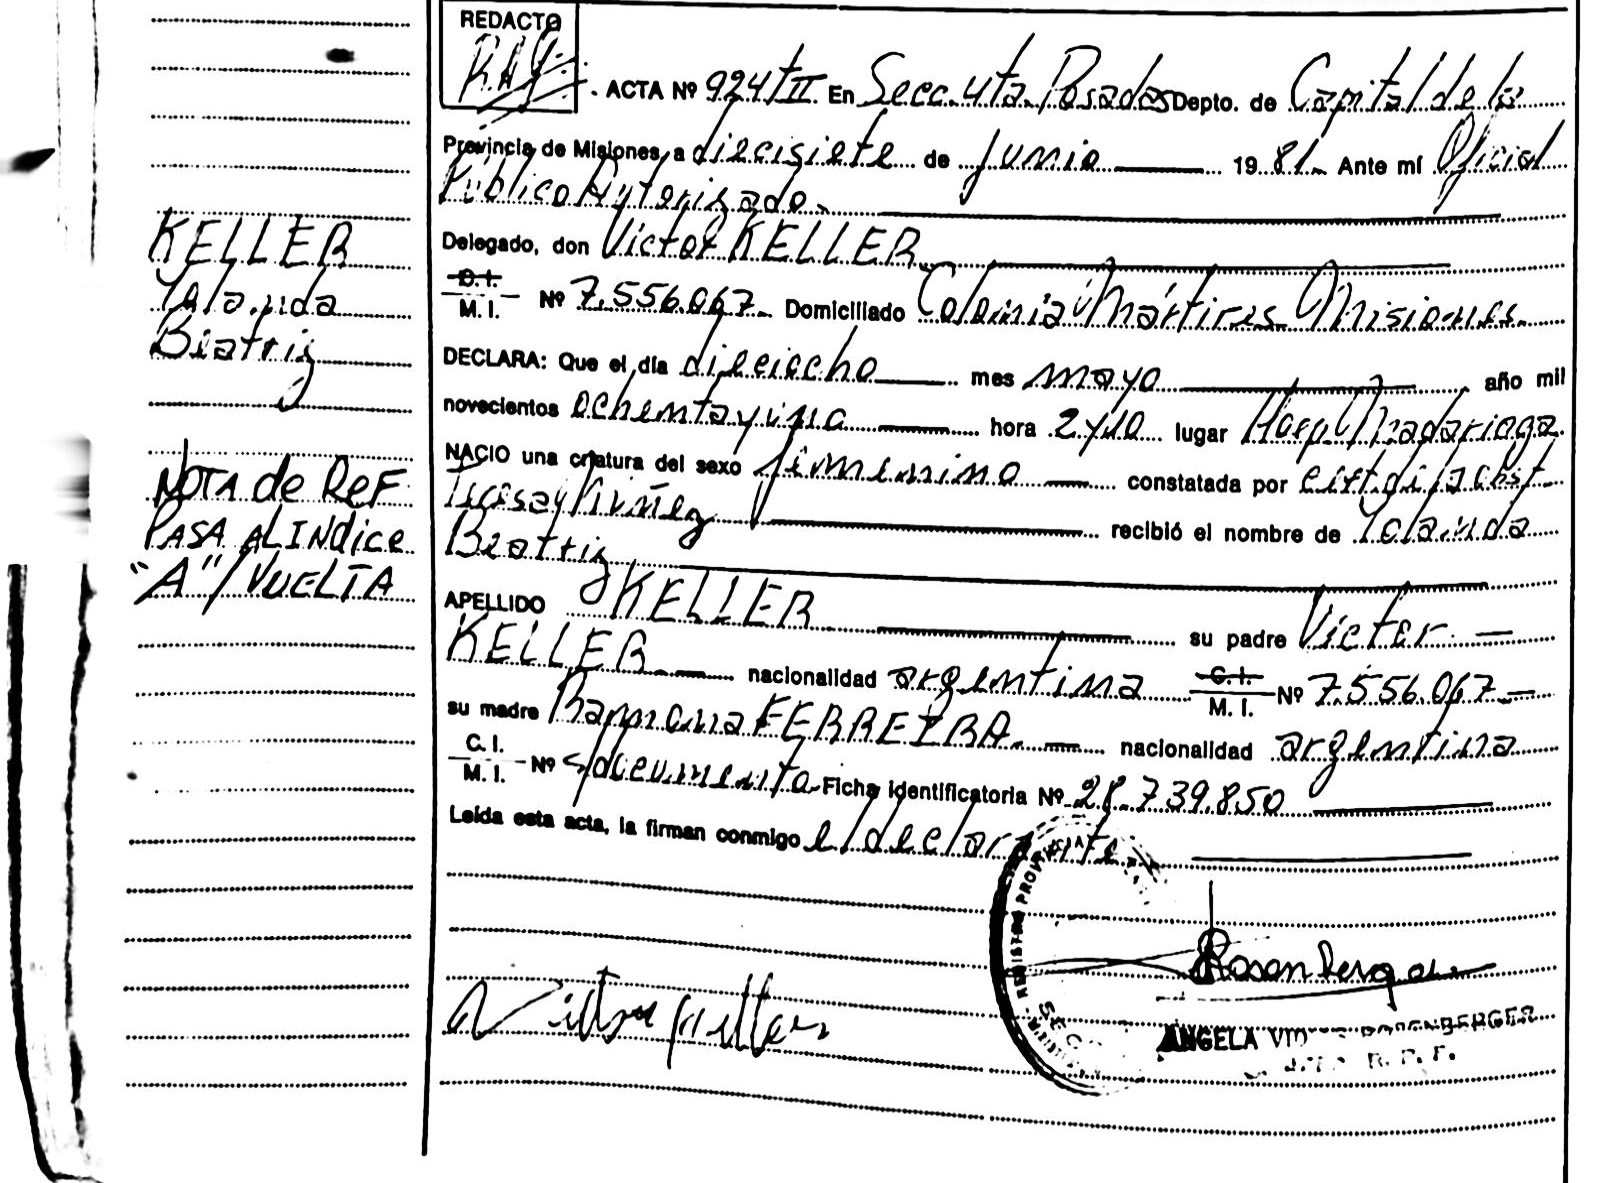 REDACTO
ACTA Nº 924/II En Secc. 4ta. Posadas Depto. de Capital de la
Provincia de Misiones, a diecisiete de Junio 1981. Ante mí Oficial
Público Autorizado.
KELLER
Yolanda
Beatriz
Delegado, don Victor KELLER
C.I.
M.I. Nº 7.556.067. Domiciliado Colonia Mártires Misiones.
DECLARA: Que el día dieciocho mes mayo año mil
novecientos ochentayuno hora 2y10 lugar Hosp. Madariaga
NACIO una criatura del sexo femenino constatada por cert. obst.
Teresa Nuñez recibió el nombre de Yolanda
Beatriz
NOTA de ReF
PASA AL INDice
"A"/VUELTA
APELLIDO KELLER su padre Victor
KELLER nacionalidad argentina C.I.
M.I. Nº 7.556.067
su madre Ramona FERREIRA. nacionalidad argentina
C.I.
M.I. Nº s/documento. Ficha identificatoria Nº 28.739.850
Leída esta acta, la firman conmigo el declarante
Rosenberger
ANGELA